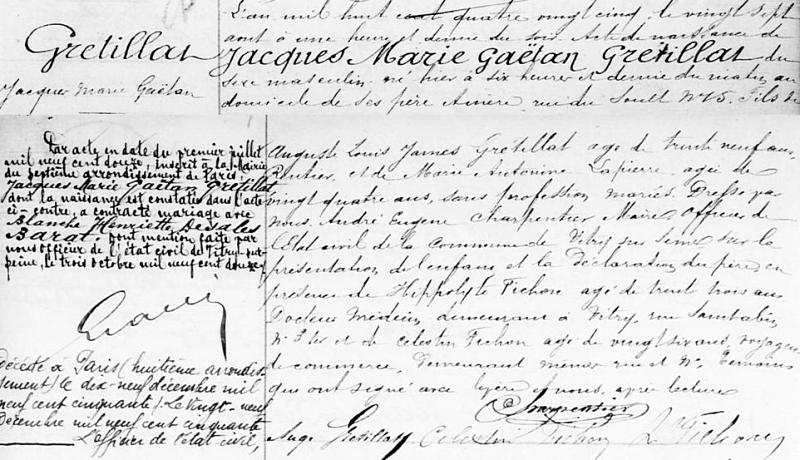 L'an mil huit cent quatre vingt cinq, le vingt sept
août à une heure et demie du soir Acte de naissance de
Gretillat
Jacques Marie Gaëtan
Jacques Marie Gaëtan Gretillat du
sexe masculin né hier à six heures et demie du matin au
domicile de ses père & mère, rue du Soult N° 15. Fils de
Par acte en date du premier juillet
mil neuf cent douze, inscrit à la Mairie
du septième arrondissement de Paris,
Jacques Marie Gaëtan Gretillat
dont la naissance est constatée dans l'acte
ci-contre, a contracté mariage avec
Blanche Henriette Desales
Barat. Dont mention faite par
nous officier de l'état civil de Vitry-sur-
Seine, le trois octobre mil neuf cent douze
Décédé à Paris (huitième arrondis-
sement) le dix-neuf décembre mil
neuf cent cinquante /. Le vingt-neuf
Décembre mil neuf cent cinquante
L'officier de l'état civil,
Auguste Louis James Gretillat âgé de trente neuf ans,
Rentier, et de Marie Antonine Lapierre âgée de
vingt quatre ans, sans profession mariés. Dressé par
nous André Eugène Charpentier Maire Officier de
l'Etat civil de la Commune de Vitry sur Seine sur la
présentation de l'enfant et la Déclaration du père en
présence de Hippolyte Fichon âgé de trente trois ans
Docteur Médecin, demeurant à Vitry, rue
et de Celestin Fichon âgé de vingt six ans, voyageur
de commerce, Demeurant même rue et N°, Témoins
qui ont signé avec le père et nous, après lecture
Charpentier
Aug. Gretillat Celestin Fichon H Fichon